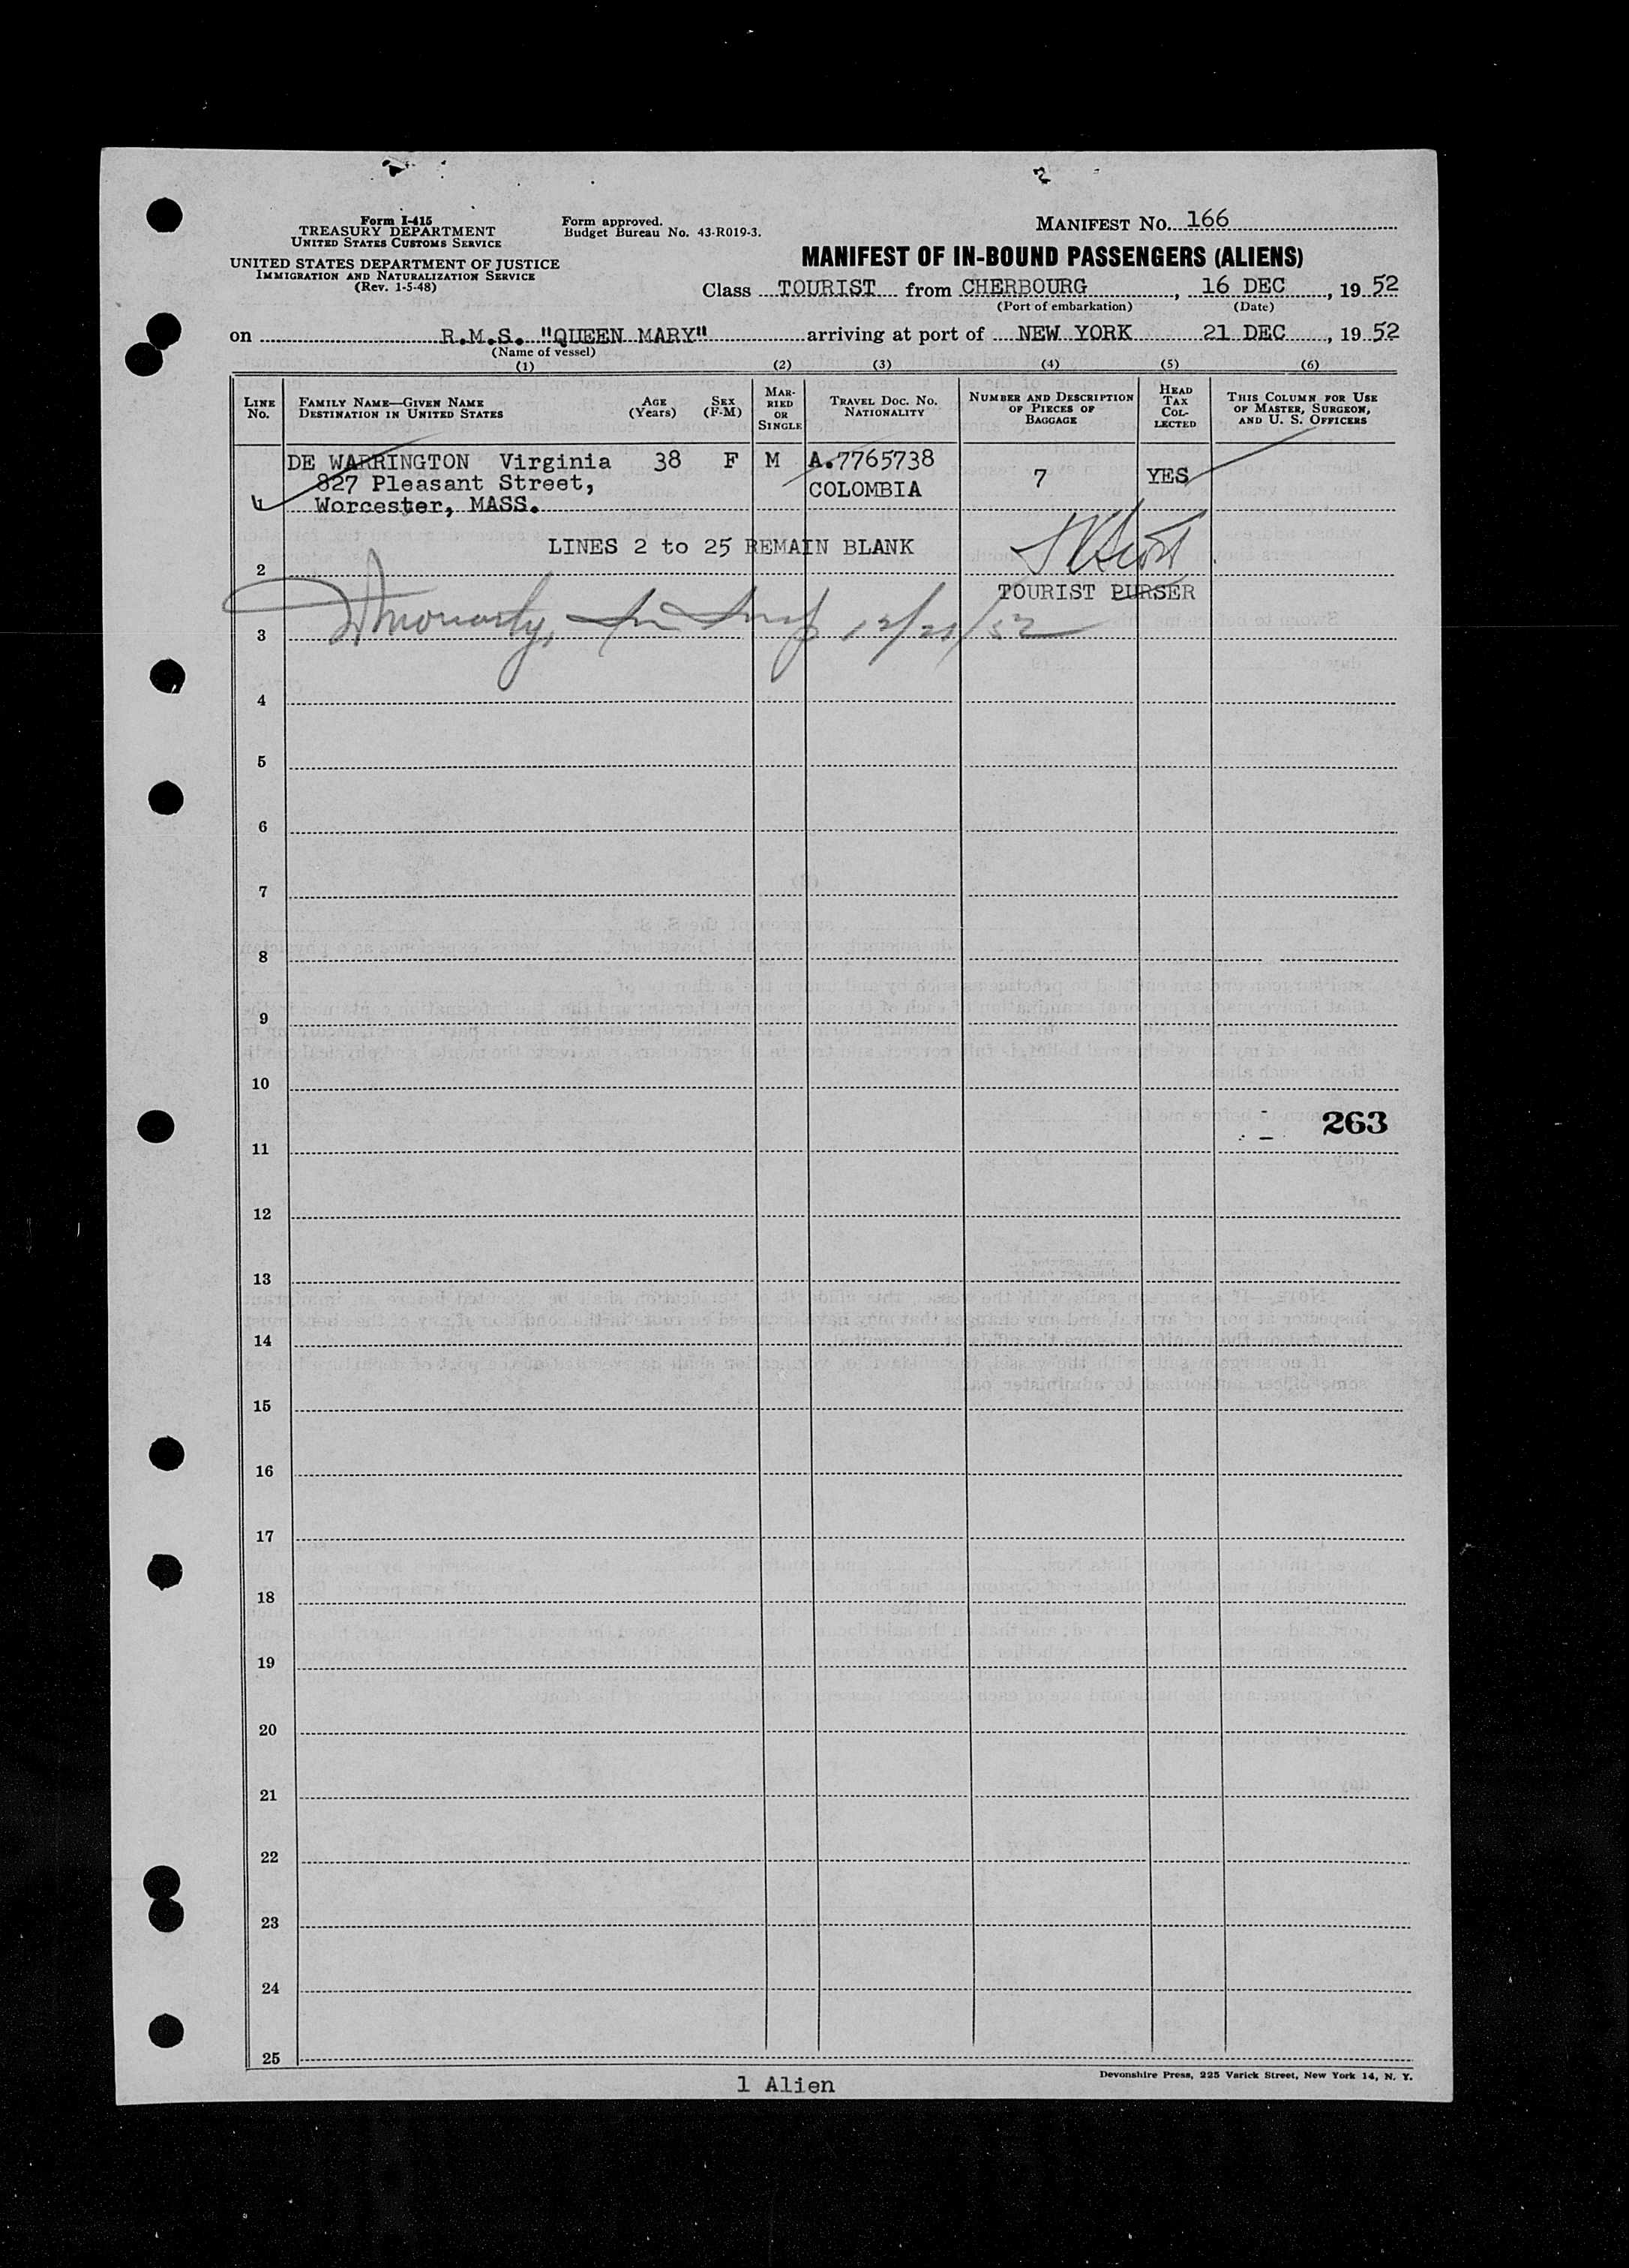 Form I-415
TREASURY DEPARTMENT
UNITED STATES CUSTOMS SERVICE
UNITED STATES DEPARTMENT OF JUSTICE
IMMIGRATION AND NATURALIZATION SERVICE
(Rev. 1-5-48)
Form approved.
Budget Bureau No. 43-R019-3.
MANIFEST NO. 166
MANIFEST OF IN-BOUND PASSENGERS (ALIENS)
Class TOURIST from CHERBOURG, 16 DEC, 1952
(Port of embarkation) (Date)
on R.M.S. "QUEEN MARY" arriving at port of NEW YORK 21 DEC, 1952
(Name of vessel)
(1) (2) (3) (4) (5) (6)
LINE NO.
FAMILY NAME—GIVEN NAME
DESTINATION IN UNITED STATES
AGE
(Years)
SEX
(F-M)
MAR-
RIED
OR
SINGLE
TRAVEL DOC. NO.
NATIONALITY
NUMBER AND DESCRIPTION
OF PIECES OF
BAGGAGE
HEAD
TAX
COL-
LECTED
THIS COLUMN FOR USE
OF MASTER, SURGEON,
AND U. S. OFFICERS
DE WARRINGTON Virginia 38 F M A.7765738
827 Pleasant Street, COLOMBIA 7 YES
1 Worcester, MASS.
LINES 2 to 25 REMAIN BLANK
2
TOURIST PURSER
3 Moriarty, 12/21/52
4
5
6
7
8
9
10
263
11
12
13
14
15
16
17
18
19
20
21
22
23
24
25
1 Alien
Devonshire Press, 225 Varick Street, New York 14, N. Y.